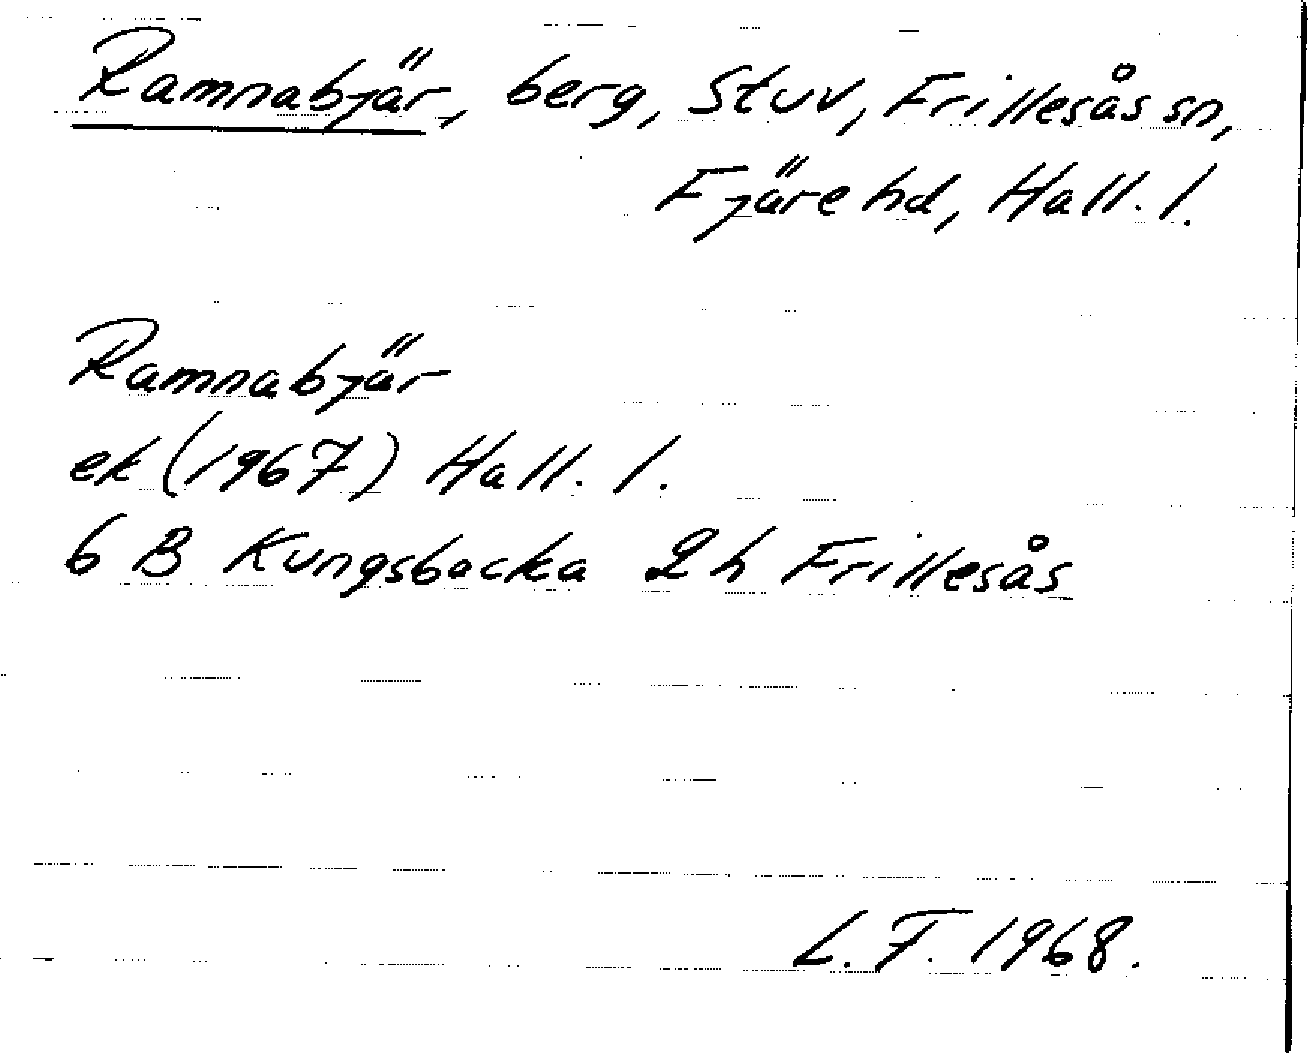 Ramnabjär, berg, Stuv, Frillesås sn,
Fjäre hd, Hall. l.
Ramnabjär
ek (1967) Hall. l.
6 B Kungsbacka 2 h Frillesås
L.F. 1968.